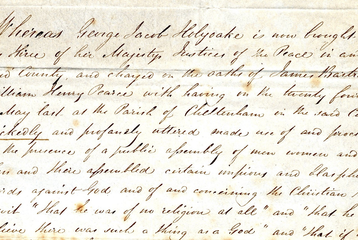 Whereas George Jacob Holyoake is now brought
Nine of her Majestys Justices of the Peace in an
County, and charged on the oaths of James Bartr
William Henry Pearce with having on the twenty four
May last at the Parish of Cheltenham in the said Co
ickedly and profanely uttered made use of and proc
the presence of a public assembly of men women and
then and there assembled certain impious and blasph
ords against God and of and concerning the Christian
wit "that he was of no religion at all" and "that he
lieve there was such a thing as a God" and "that if